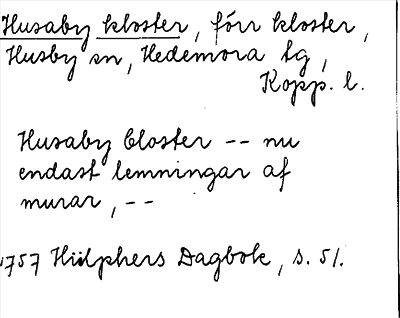 Husaby kloster, förr kloster,
Husby sn, Hedemora tg,
Kopp. l.
Husaby Closter -- nu
endast lemningar af
murar, --
1757 Hülphers Dagbok, s. 51.